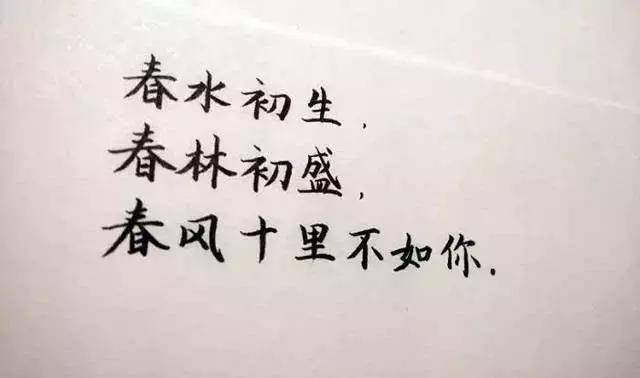 春水初生，
春林初盛，
春风十里不如你.